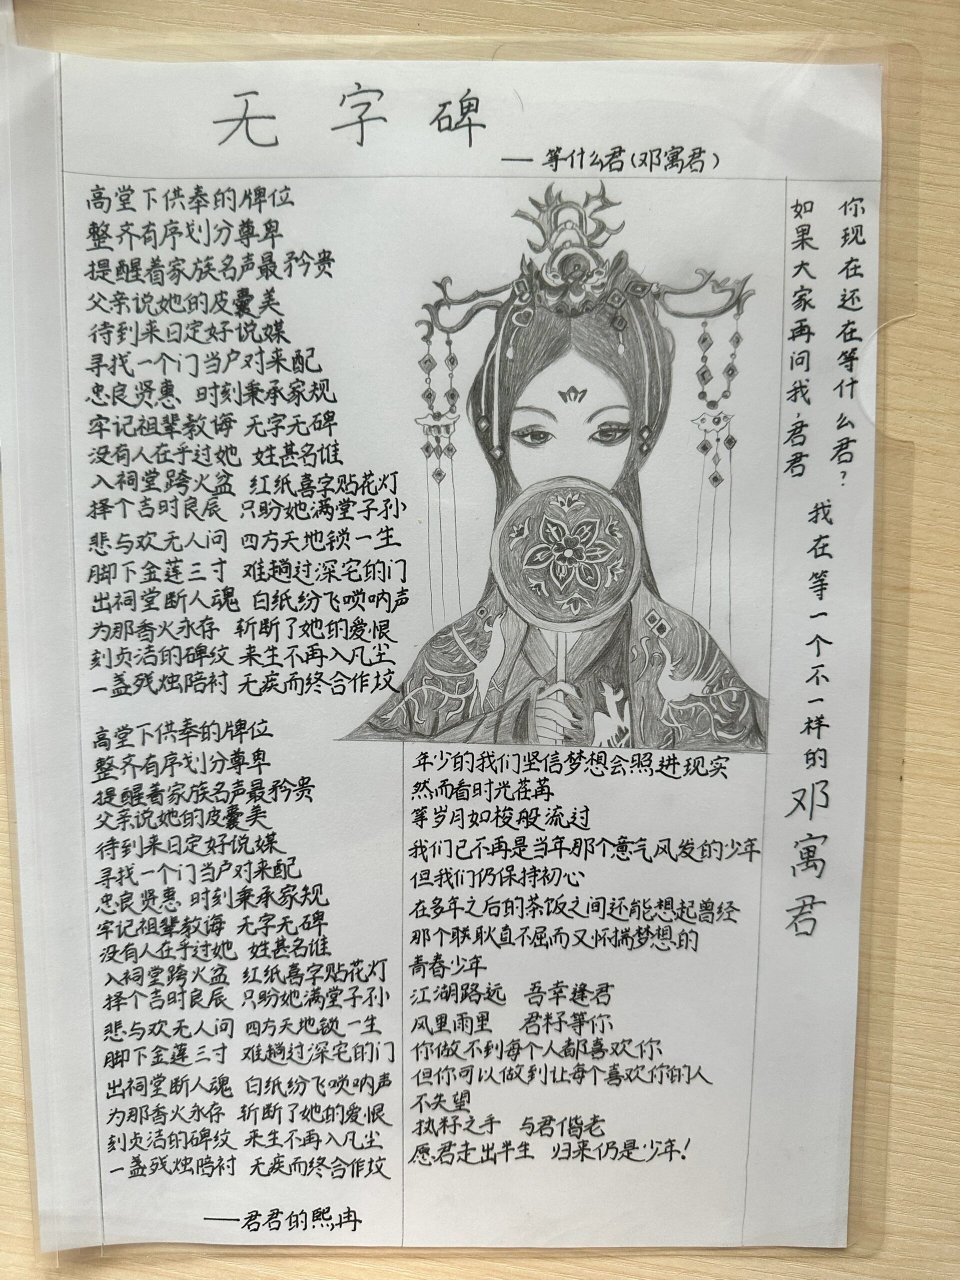 无字碑
——等什么君(邓寓君)
高堂下供奉的牌位
整齐有序划分尊卑
提醒着家族名声最矜贵
父亲说她的皮囊美
待到来日定好说媒
寻找一个门当户对来配
忠良贤惠 时刻秉承家规
牢记祖辈教诲 无字无碑
没有人在乎过她 姓甚名谁
入祠堂跨火盆 红纸喜字贴花灯
择个吉时良辰 只盼她满堂子孙
悲与欢无人问 四方天地锁一生
脚下金莲三寸 难趟过深宅的门
出祠堂断人魂 白纸纷飞唢呐声
为那香火永存 斩断了她的爱恨
刻贞洁的碑纹 来生不再入凡尘
一盏残烛陪衬 无疾而终合作坟
高堂下供奉的牌位
整齐有序划分尊卑
提醒着家族名声最矜贵
父亲说她的皮囊美
待到来日定好说媒
寻找一个门当户对来配
忠良贤惠 时刻秉承家规
牢记祖辈教诲 无字无碑
没有人在乎过她 姓甚名谁
入祠堂跨火盆 红纸喜字贴花灯
择个吉时良辰 只盼她满堂子孙
悲与欢无人问 四方天地锁一生
脚下金莲三寸 难趟过深宅的门
出祠堂断人魂 白纸纷飞唢呐声
为那香火永存 斩断了她的爱恨
刻贞洁的碑纹 来生不再入凡尘
一盏残烛陪衬 无疾而终合作坟
——君君的熙冉
年少的我们坚信梦想会照进现实
然而看时光荏苒
等岁月如梭般流过
我们已不再是当年那个意气风发的少年
但我们仍保持初心
在多年之后的茶饭之间还能想起曾经
那个耿直不屈而又怀揣梦想的
青春少年
江湖路远 吾幸逢君
风里雨里 君籽等你
你做不到每个人都喜欢你
但你可以做到让每个喜欢你的人
不失望
执籽之手 与君偕老
愿君走出半生 归来仍是少年!
如果大家再问我,君君
你现在还在等什么君?
我在等一个不一样的邓寓君